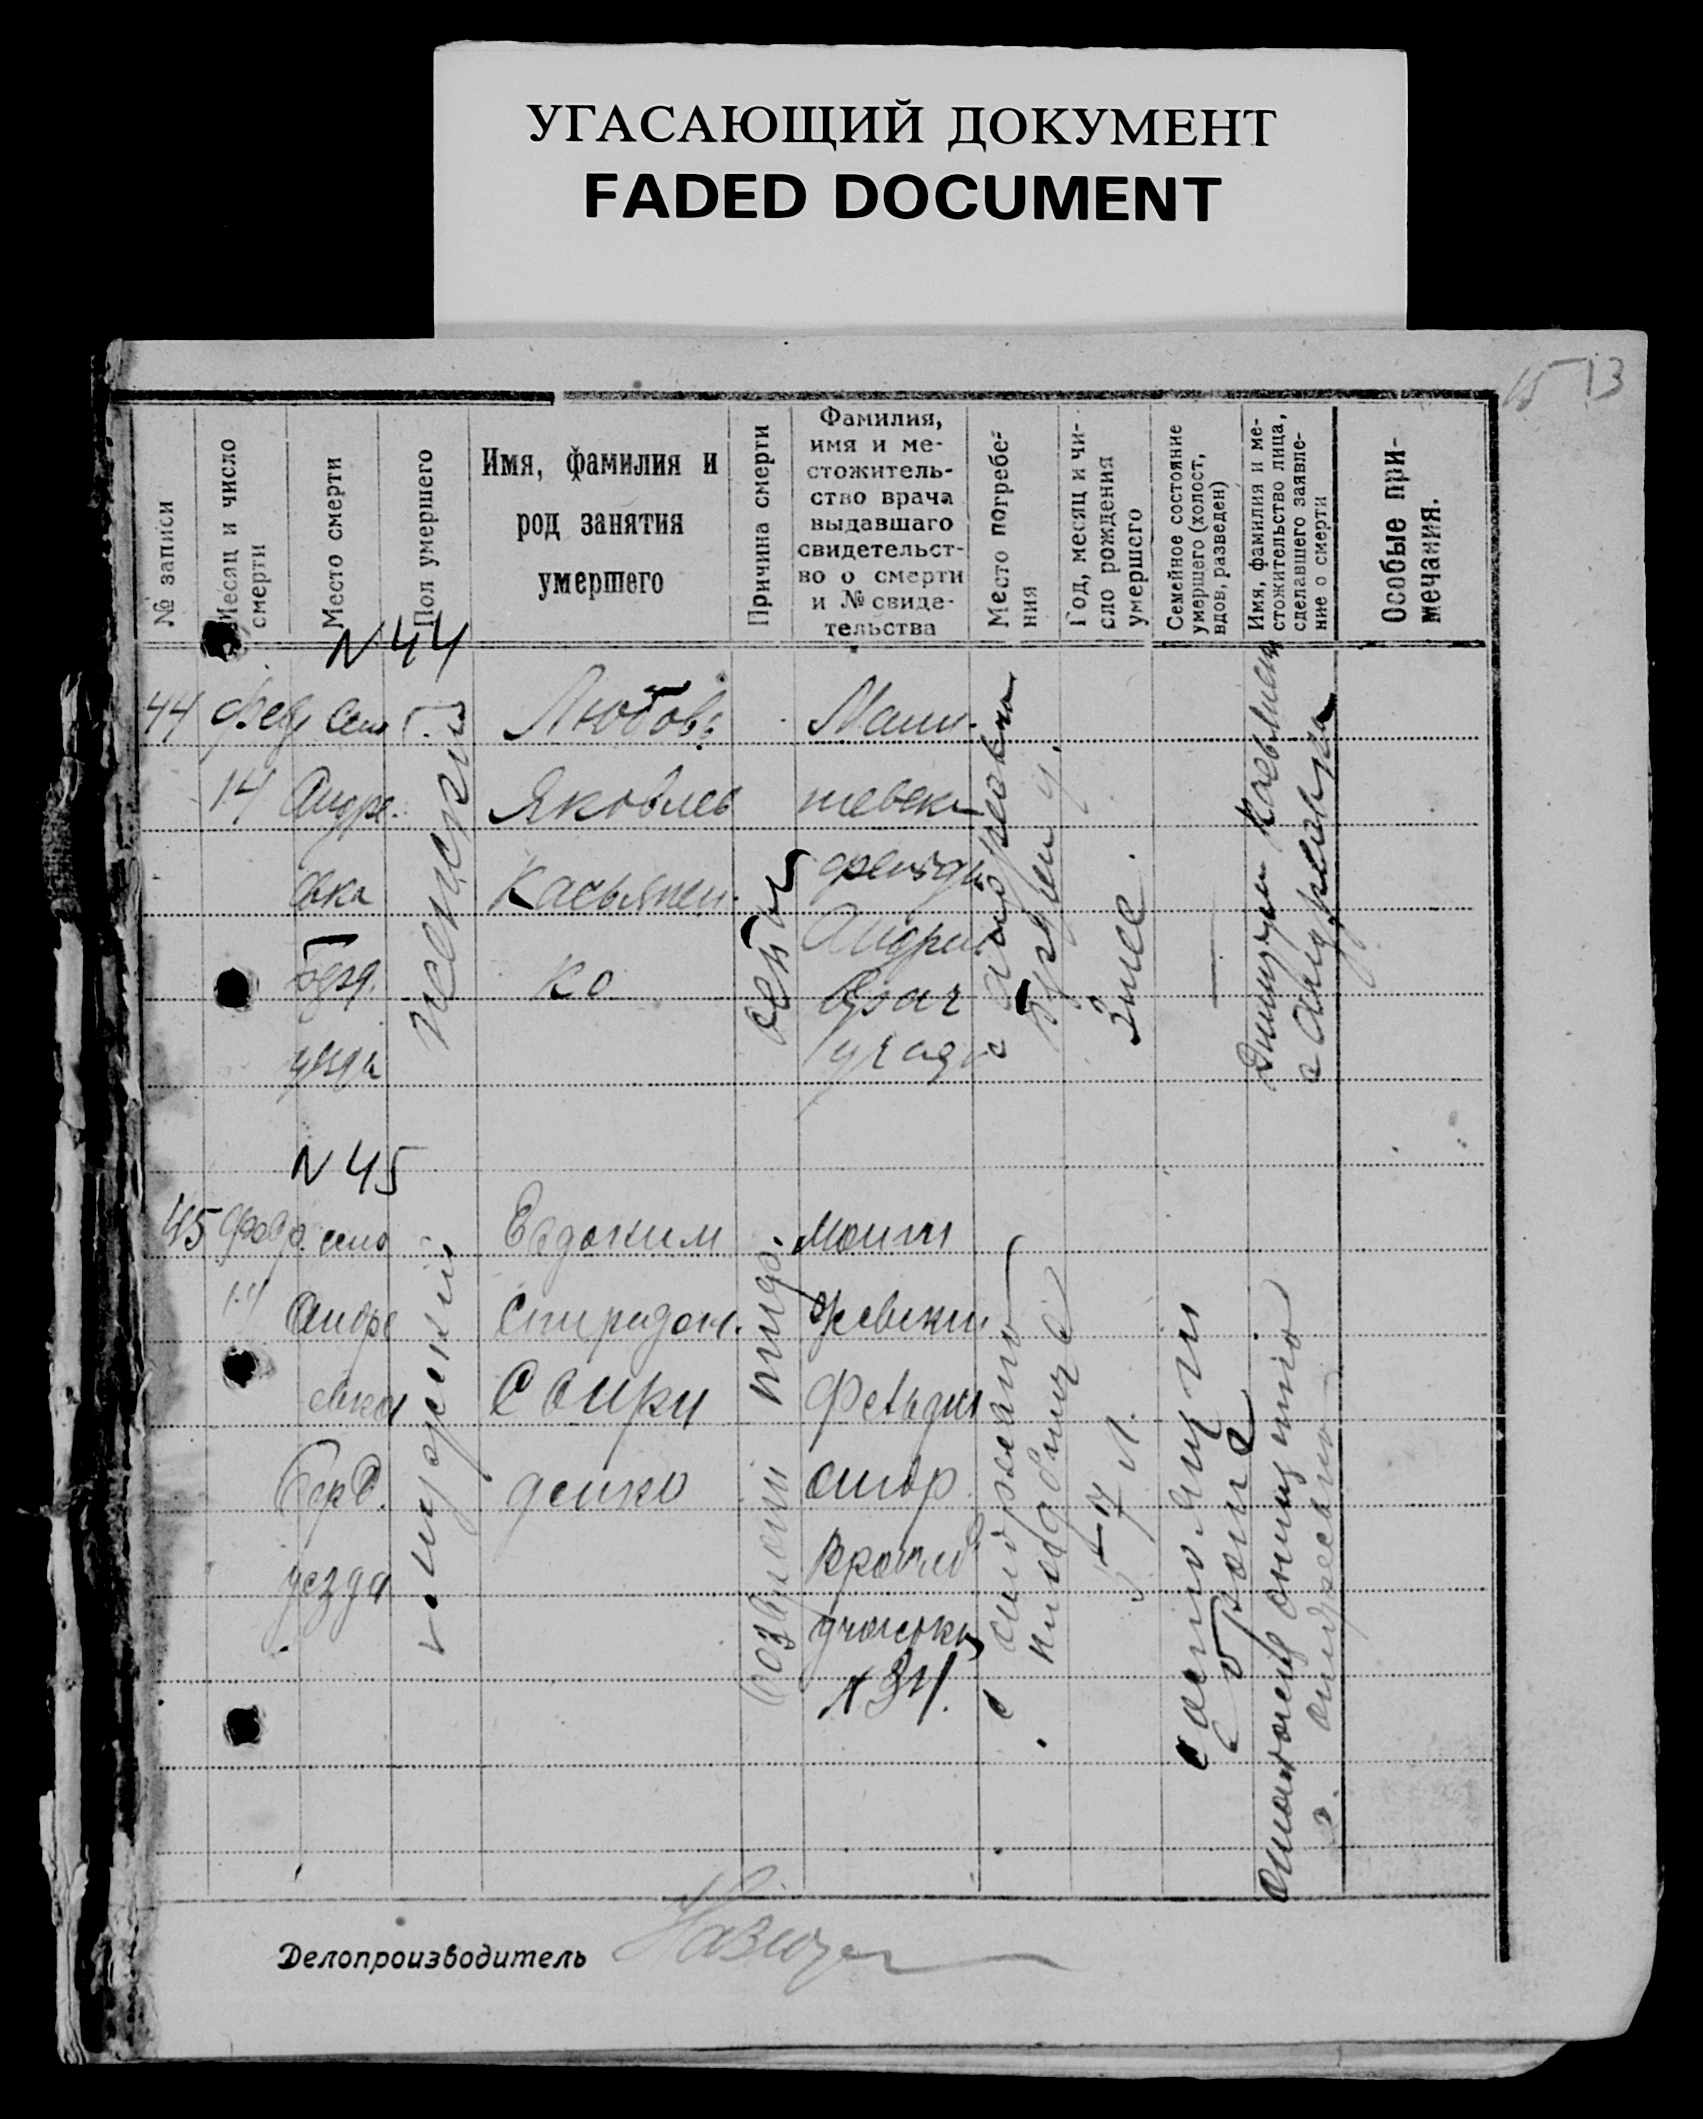 УГАСАЮЩИЙ ДОКУМЕНТ
FADED DOCUMENT
15 13
№ записи
Месяц и число
смерти
Место смерти
Пол умершего
Имя, фамилия и
род занятия
умершего
Причина смерти
Фамилия,
имя и ме-
стожитель-
ство врача
выдавшаго
свидетельст-
во о смерти
и № свиде-
тельства
Место погребе-
ния
Год, месяц и чи-
сло рождения
умершего
Семейное состояние
умершего (холост,
вдов, разведен)
Имя, фамилия и ме-
стожительство лица,
сделавшего заявле-
ние о смерти
Особые при-
мечания.
N 44
44
Февр
14
село
Андре
евка
Берд.
уезда
женский
Любовь
Яковлев
Касьянен
ко
фельдш
Андреев
Врач
с Андреевка
3 мес.
с Андреевка
N 45
45
Февр.
14
село
Андре
евка
Берд.
уезда
мужский
Евдоким
Спиридон.
Свири
денко
возвратн тиф.
Фельдш
Андр
Врачеб
участка
N 34.
с Андреевка
кладбище
57 л.
состоящи
в браке
с. Андреевка
Делопроизводитель